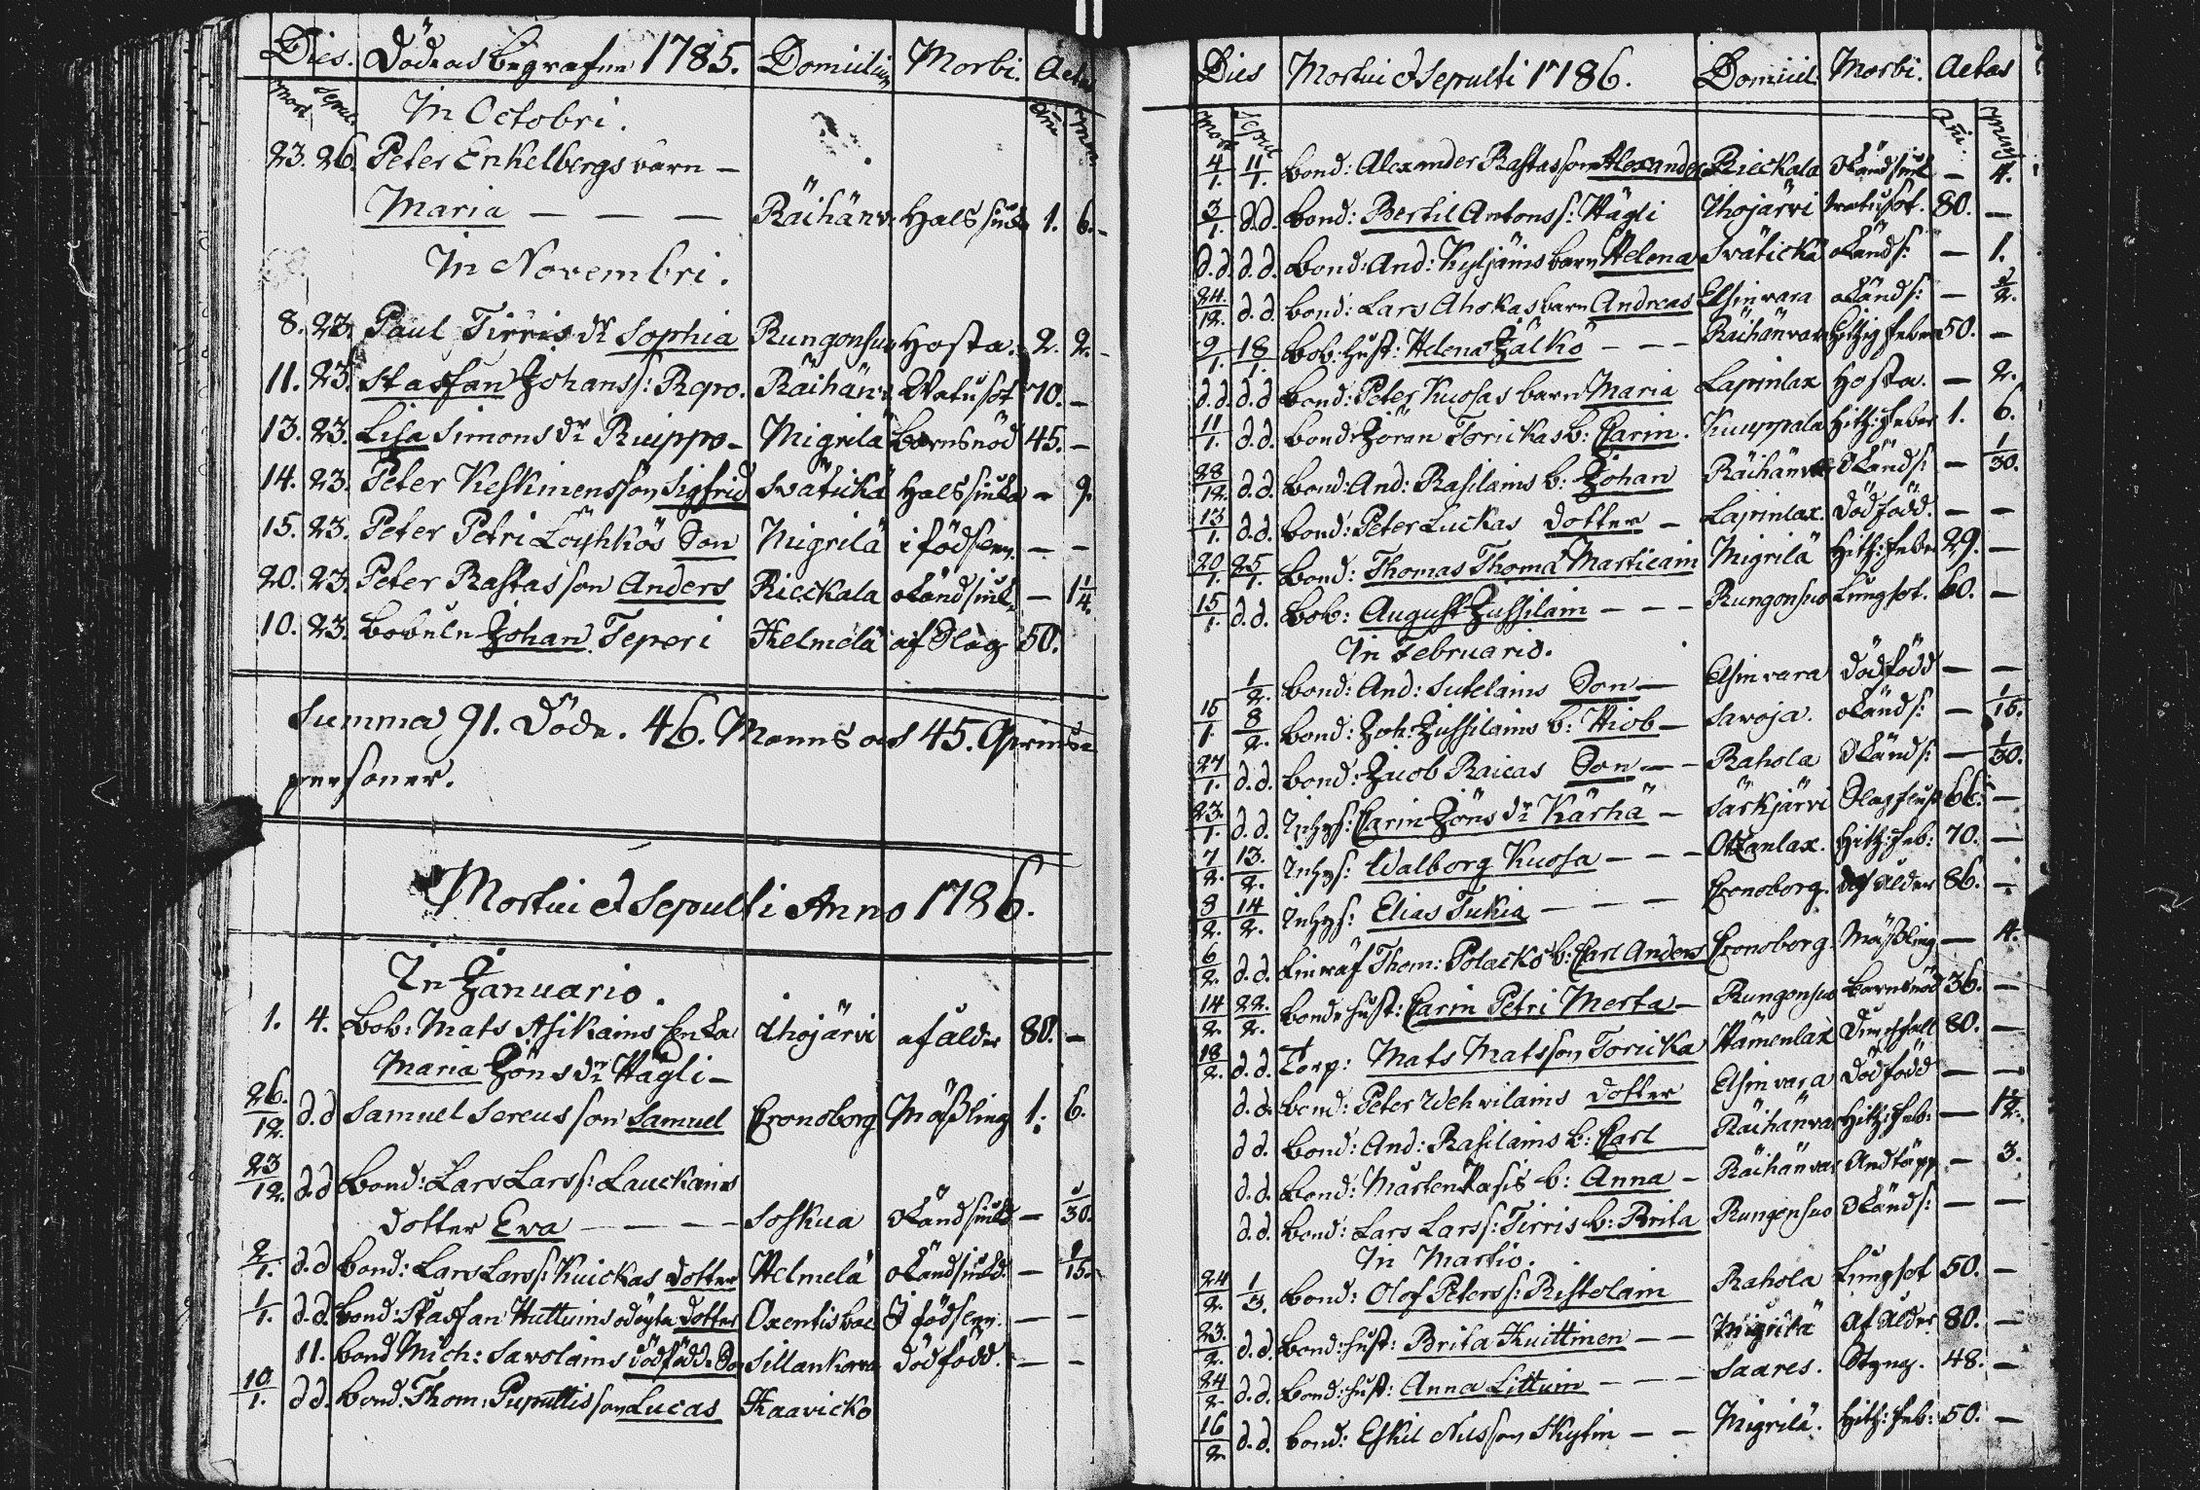 Dies. Döde och begrafne 1785. Domicilium Morbi. Aetas
Mort. Sepult. Ann. Mens.
In Octobri.
23. 26. Peter Enkelbergs barn —
Maria — — — Räihänv. Halssiuk 1. 6.
In Novembri.
8. 23. Paul Tirris dr Sophia Rungonsuo Hosta. 2. 2.
11. 23. Staffan Johanss: Repo. Räihänv. Watusot 70. —
13. 23. Lisa Simons dr Ruippo — Migrilä Barnsnöd 45. —
14. 23. Peter Keskinens son Sigfrid Sväticka Halssiuka — 9.
15. 23. Peter Petri Löyhkös Son Migrilä i födseln. — —
20. 23. Peter Rastas son Anders Rieckala okänd siuk. — 1/4.
10. 23. Bobuln Johan Teperi Helmelä af Slag 50.
Summa 91. Döde. 46. Manns och 45. Qvinns
personer.
Mortui et Sepulti Anno 1786.
In Januario.
1. 4. Bob: Mats Asikains Enka Ihojärvi af ålder 80. —
Maria Jöns dr Hägli —
26/12. d.d Samuel Sereus son Samuel Cronoborg Mäßling 1. 6.
23/12. d.d Bond: Lars Larss: Lauckains
dotter Eva — — — Soskua okänd siukd — 1/30.
2/1. d.d Bond: Lars Larss: Kuickas dotter Helmelä okänd siukd. — 1/15.
1/1. d.d. Bond: Staffan Huttuins odöpta dotter Oxentisbac I födseln. — —
11. Bond Mich: Savolains dödfödde Son Sillankorva dödfödd. — —
10/1. d d. Bond. Thom: Puputtis son Lucas Haavicko
Dies Mortui et Sepulti 1786. Domicil. Morbi. Aetas
Mort. Sepult Ann. Mens
4/1. 11/1. Bond: Alexander Rastas son Alexander Rieckala okänd siuk — 4.
3/1. d.d. Bond: Bertil Antons s: Hägli Ihojärvi Watusot. 80. —
d.d. d.d. Bond: And: Kyljäins barn Helena Sväticka okänd s: — 1.
24./12. d.d Bond: Lars Ahokas barn Andreas Elsinvara okänd s: —
9/1. 18/1. Bob: Hust: Helena Jälkö — — — Räihänvara Hitzig feber 50. —
d.d. d.d Bond: Peter Kuosas barn Maria Lapinlax Hosta. — 2.
11/1. d.d. Bond: Jöran Torickas b: Carin. Kuuppala Hitz: feber 1. 6.
28/12. d.d. Bond: And: Rasilains b: Johan Räihänvar okänd s: — 1/30.
13/1. d.d. Bond: Peter Luckas dotter — Lapinlax. Dödfödd. — —
20/1. 25/1. Bond: Thomas Thomæ Marticain Migrilä Hitz: feber 29. —
15/1. d.d. Bob: August Jussilain — — — Rungonsuo Lungsot. 60. —
In Februario.
1/2. Bond: And: Sutelains Son — Elsinvara Dödfödd — —
15/1. 8/2. Bond: Joh: Jussilains b: Hiob — Savoja. okänd s: — 1/15.
27/1. d.d. Bond: Jacob Raicas Son — — Rahola okänd s: — 1/30.
23./1. d.d. Inhys: Carin Jöns dr Kärhä — Särkjärvi Slagfluß 66. —
7/2. 13./2. Inhys: Walborg Kuosa — — — Otzanlax. Hitz: feb: 70. —
8/2. 14/2. Inhys: Elias Tukia — — — Cronoborg. af ålder 86. —
6/2. d.d. Linväf Thom: Polackos b: Carl Anders Cronoborg. Mäßling — 4.
14/2. 22./2. Bonde hust: Carin Petri Merta — Rungonsuo Barnsnöd 36. —
18/2. d.d. Torp: Mats Mats son Toricka Hämenlax Durchfall 80. —
d.d. Bond: Peter Wehvilains dotter Elsinvara Dödfödd — —
d d. Bond: And: Rasilains b: Carl Räihänvar Hitz: feb: — 1/2.
d.d. Bond: Mårten Kasis b: Anna — Räihänvar Andtäpp — 3.
d.d. Bond: Lars Larss: Tirris b: Brita Rungonsuo okänd s: — —
In Martio.
24/2. 1/3. Bond: Olof Peterss: Ristolain Rahola Lungsot 50. —
23./2. d.d. Bond: hust: Brita Kuittinen — — Migrilä Af ålder 80. —
24/2 d.d. Bond: hust: Anna Littuin — — — Saares. Styng. 48. —
16/2 d.d. Bond: Eskil Nilsson Skytin — — Migrilä. Hitz: feb: 50. —